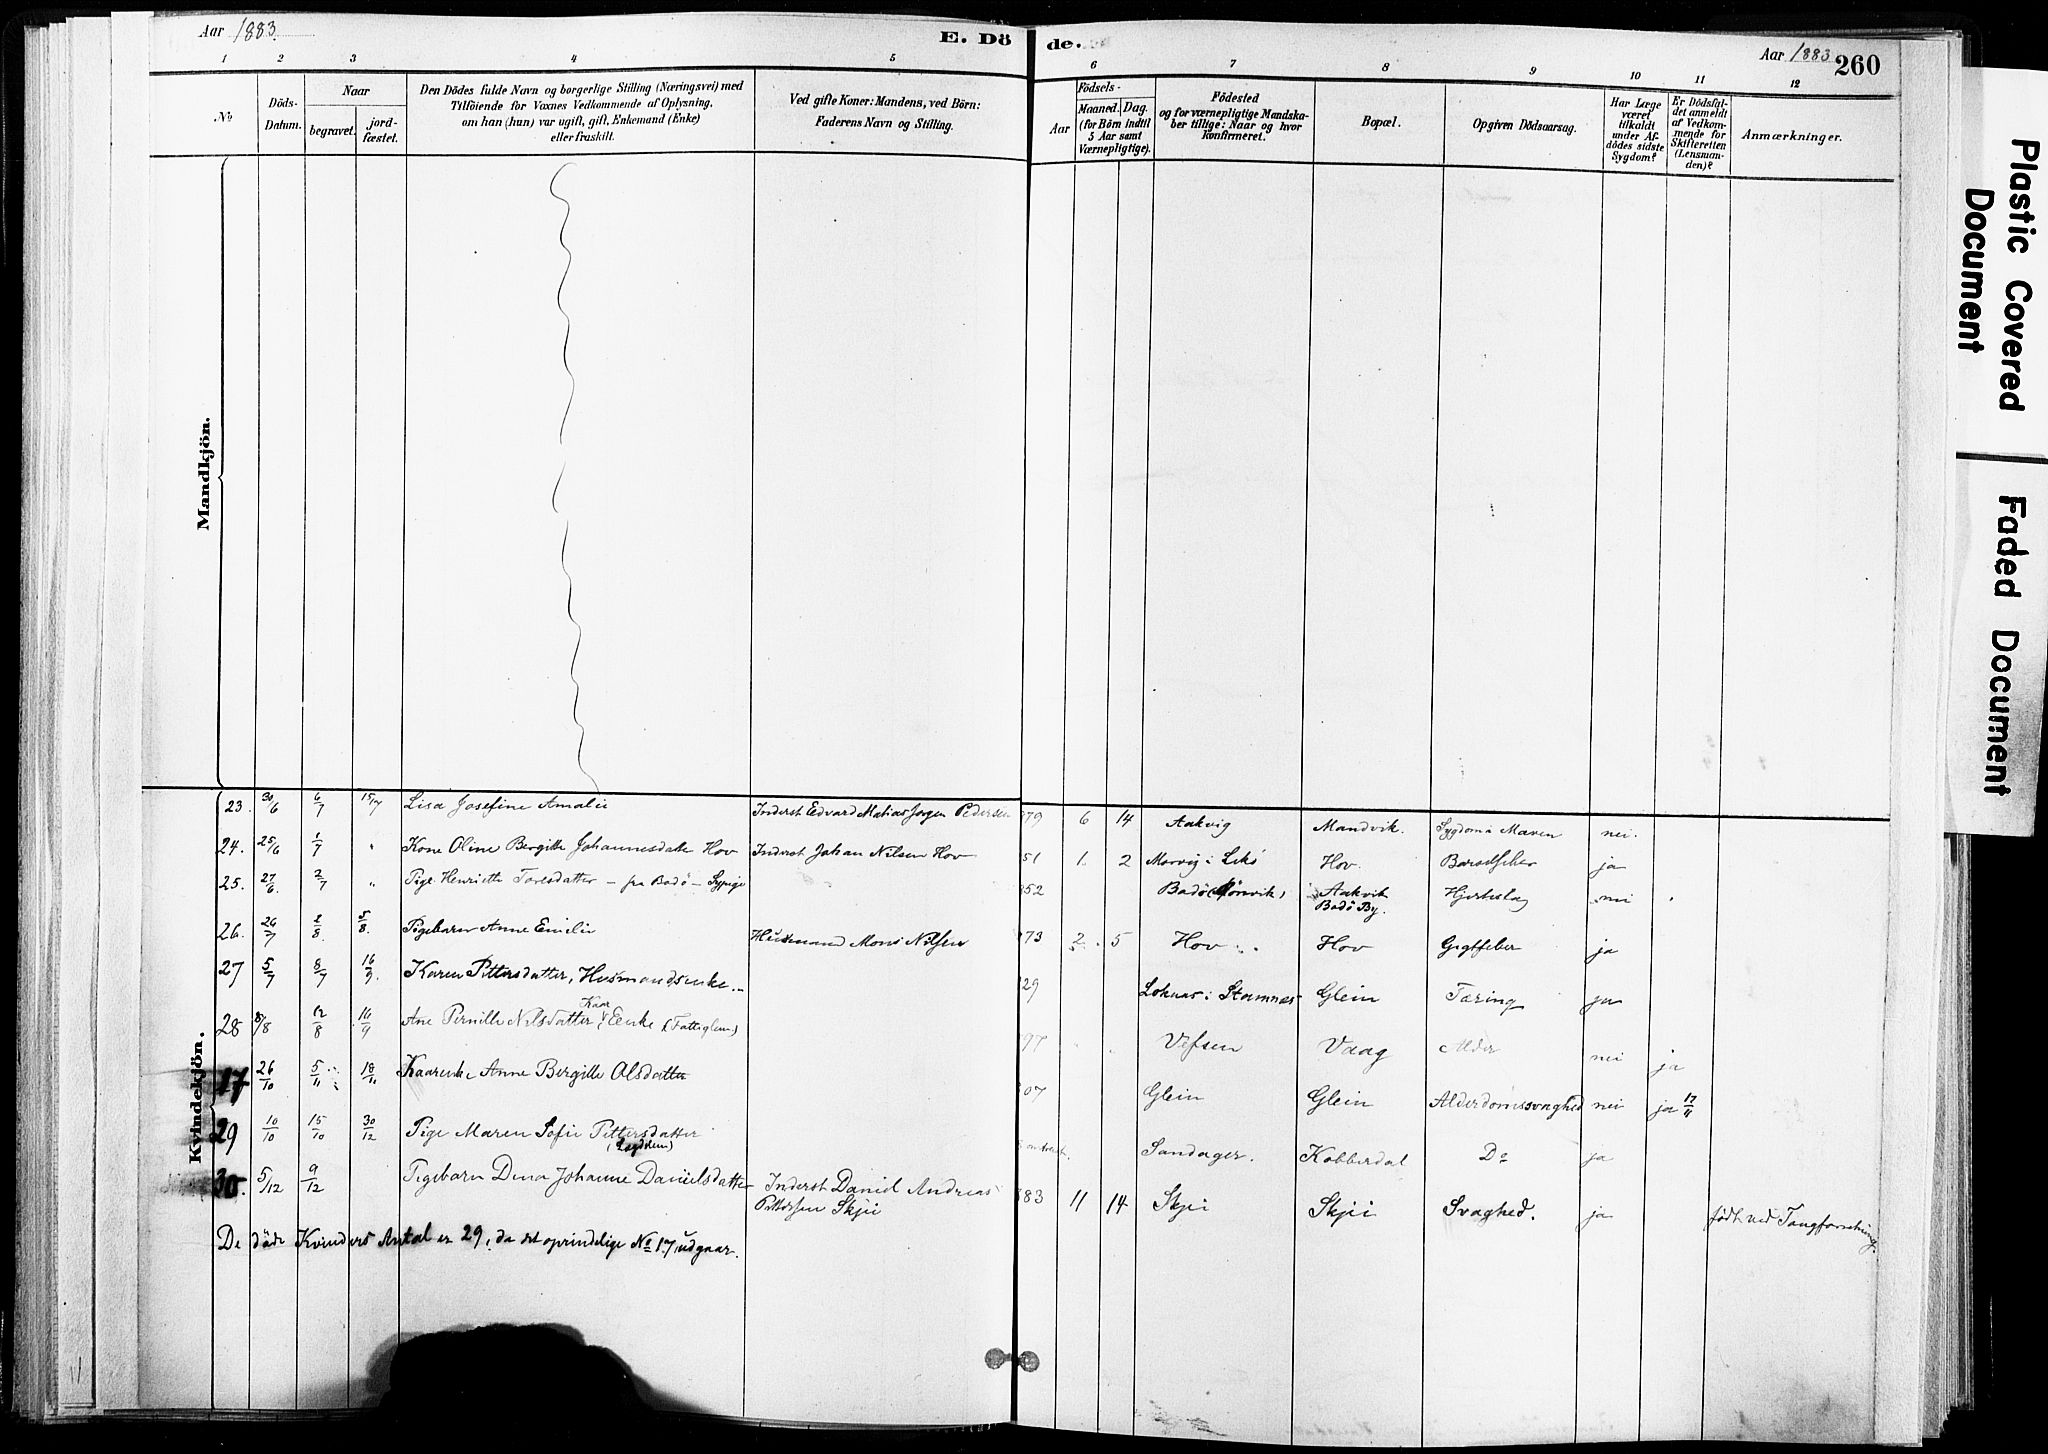 Aar 1883.
E. Dö
de.
Aar 1883
260
1 2 3 4 5 6 7 8 9 10 11 12
№
Döds-
Datum.
Naar
begravet.
jord-
fæstet.
Den Dödes fulde Navn og borgerlige Stilling (Næringsvei) med
Tilföiende for Voxnes Vedkommende af Oplysning,
om han (hun) var ugift, gift, Enkemand (Enke)
eller fraskilt.
Ved gifte Koner: Mandens, ved Börn:
Faderens Navn og Stilling.
Födsels-
Aar
Maaned. Dag.
(for Börn indtil
5 Aar samt
Værnepligtige).
Födested
og for værnepligtige Mandska-
ber tillige: Naar og hvor
konfirmeret.
Bopæl.
Opgiven Dödsaarsag.
Har Læge
været
tilkaldt
under Af-
dödes sidste
Sygdom?
Er Dödsfal-
det anmeldt
af Vedkom-
mende for
Skifteretten
(Lensman-
den)?
Anmærkninger.
Mandkjön.
Kvindekjön.
23. 30/6 6/7 15/7 Lisa Josefine Amalie Inderst Edvard Matias Jörgen Pedersen 79 6 14 Aakvig Mandvik. Sygdom i Maven nei.
24. 25/6 1/7 " Kone Oline Bergitte Johannesdatter Hov Inderst Johan Nilsen Hov 51 1. 2 Hov. Barselfeber ja
25. 27/6 2/7 " Pige Henriette Toresdatter – fra Bodö – Sypige 52 Bodö (Rönvik) Aakvik Hjerteslag nei
Bodö By.
26. 26/7 2/8 5/8. Pigebarn Anne Emilie Husmand Mons Nilsen 73 2. 5 Hov Hov Gigtfeber ja
27 5/7 8/7 16/9. Karen Pettersdatter, Husmandsenke. 29 i Stamnes Glein Tæring ja
28 8/8 12/8 16/9 Ane Pernille Nilsdatter Kaar Enke (Fattiglem) 97 " " Vefsen Vaag Alder nei ja
17 26/10 5/11 18/11 Kaarenke Anne Bergitte Olsdatter 07 Glein Glein Alderdomssvaghed nei ja 17/11
29 10/10 15/10 30/12 Pige Maren Sofie Pettersdatter Sandager. Kobberdal Do ja
(Lægdslem)
30. 5/12 9/12 Pigebarn Dina Johanne Danielsdatter Inderst Daniel Andreas 83 11 14 Skjei Skjei Svaghed. ja födt ved Tangforretning.
Pettersen Skjei
De döde Kvinders Antal er 29, da det oprindelige № 17 udgaar.
Plastic Covered
Document
Faded Document